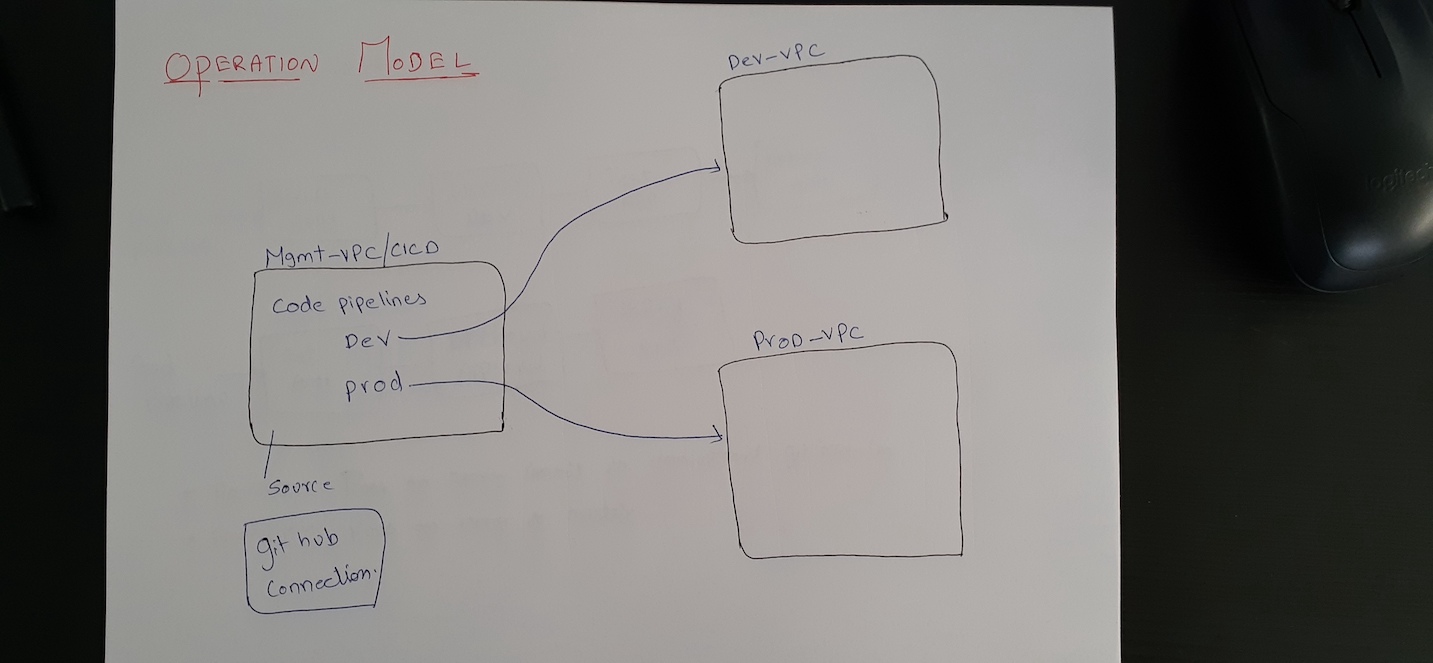 OPERATION MODEL
Dev-VPC
Mgmt-VPC/CICD
Code pipelines
Dev
prod
Source
git hub
Connection.
ProD-VPC
logitech